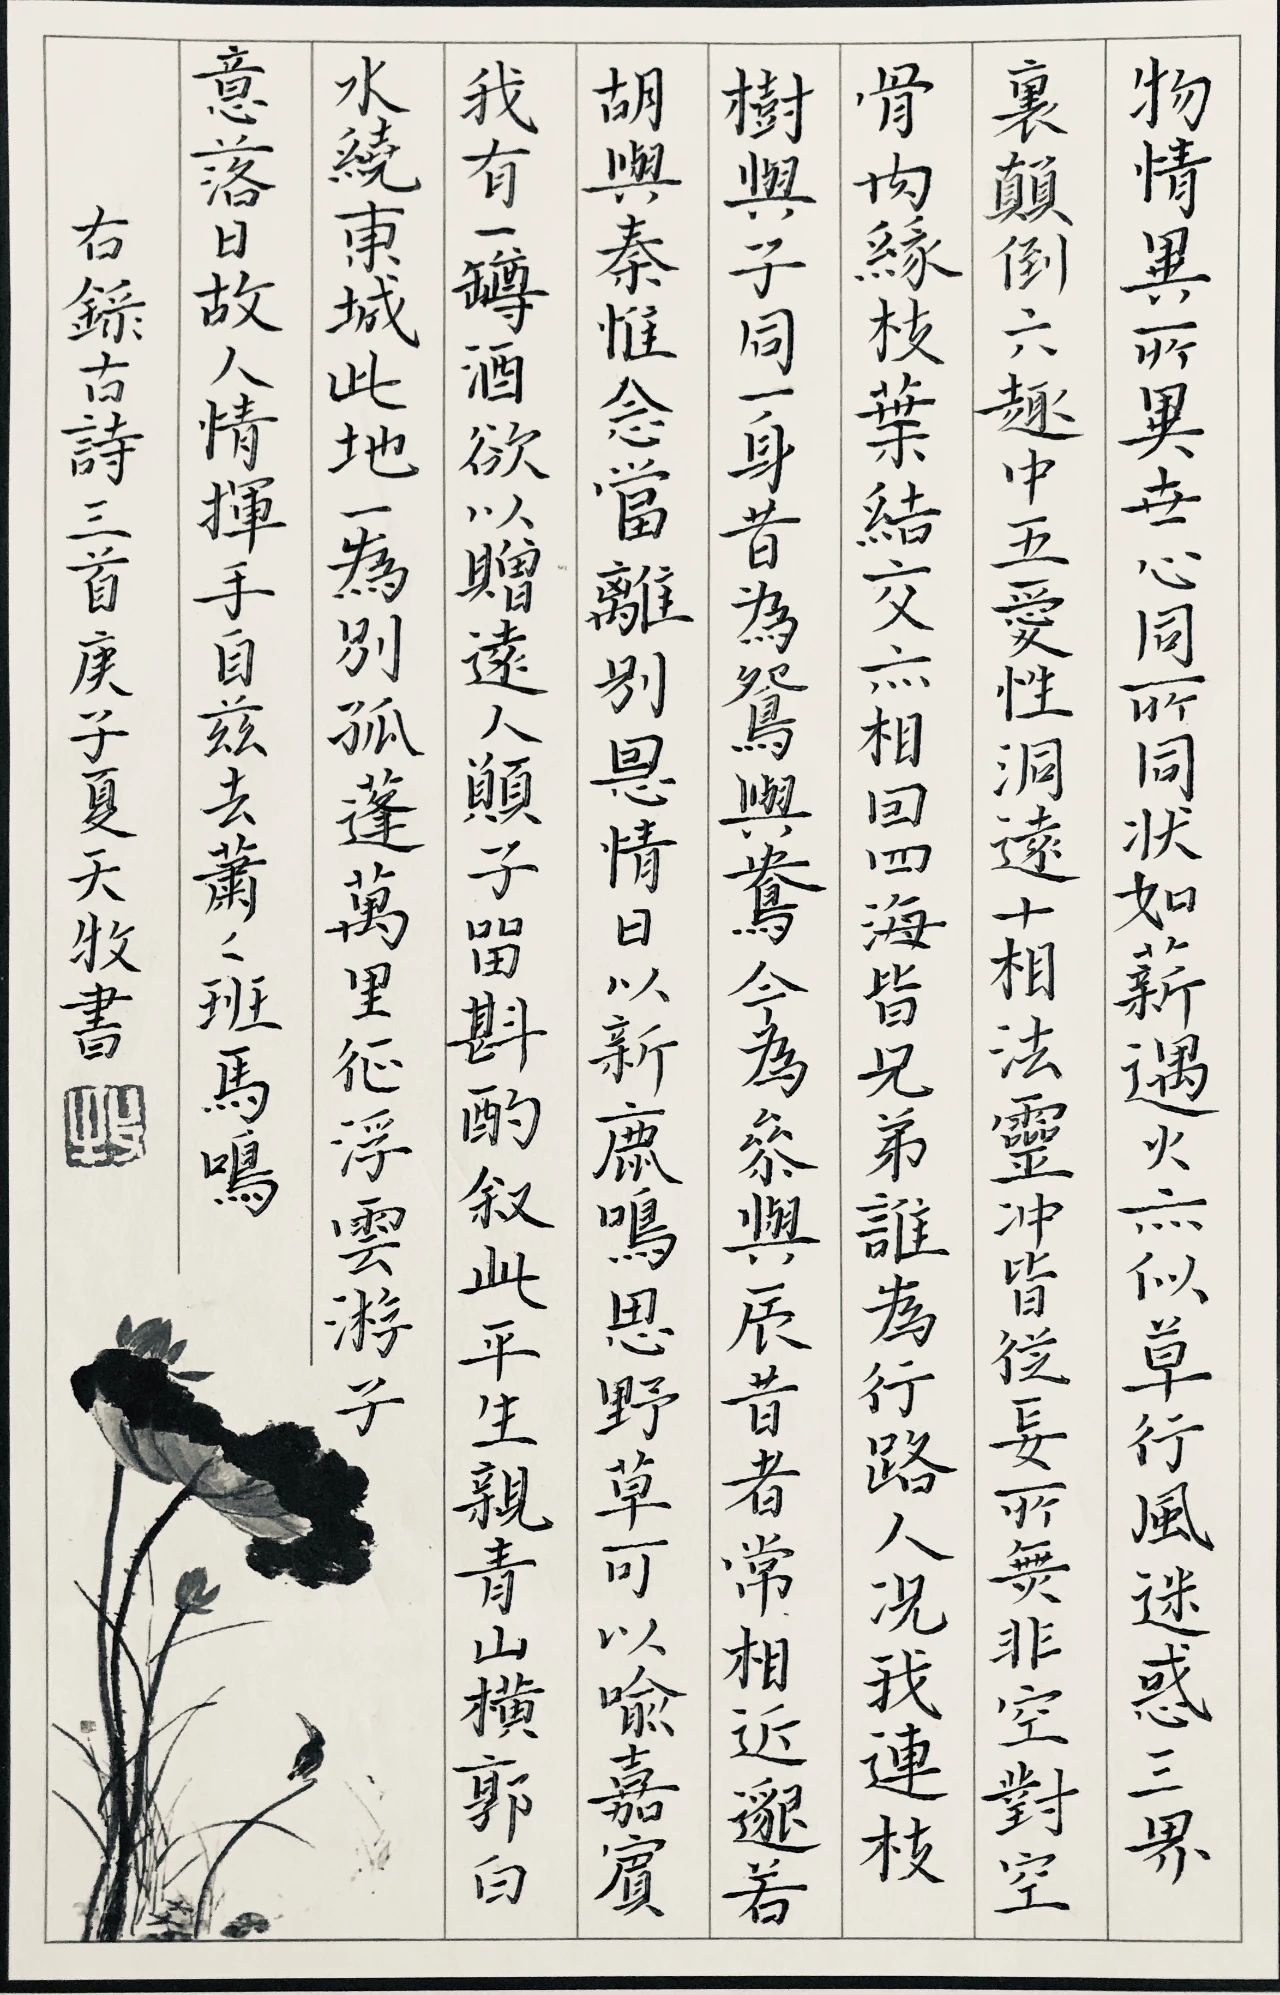 物情異所異世心同所同狀如薪遇火亦似草行風迷惑三界
裏顛倒六趣中五愛性洞遠十相法靈沖皆從妄所無非空對空
骨肉緣枝葉結交亦相因四海皆兄弟誰為行路人況我連枝
樹與子同一身昔為鴛與鴦今為參與辰昔者常相近邈若
胡與秦惟念當離別恩情日以新鹿鳴思野草可以喻嘉賓
我有一罇酒欲以贈遠人願子留斟酌叙此平生親青山橫郭白
水繞東城此地一為別孤蓬萬里征浮雲游子
意落日故人情揮手自茲去蕭〻班馬鳴
右錄古詩三首庚子夏天牧書
牧